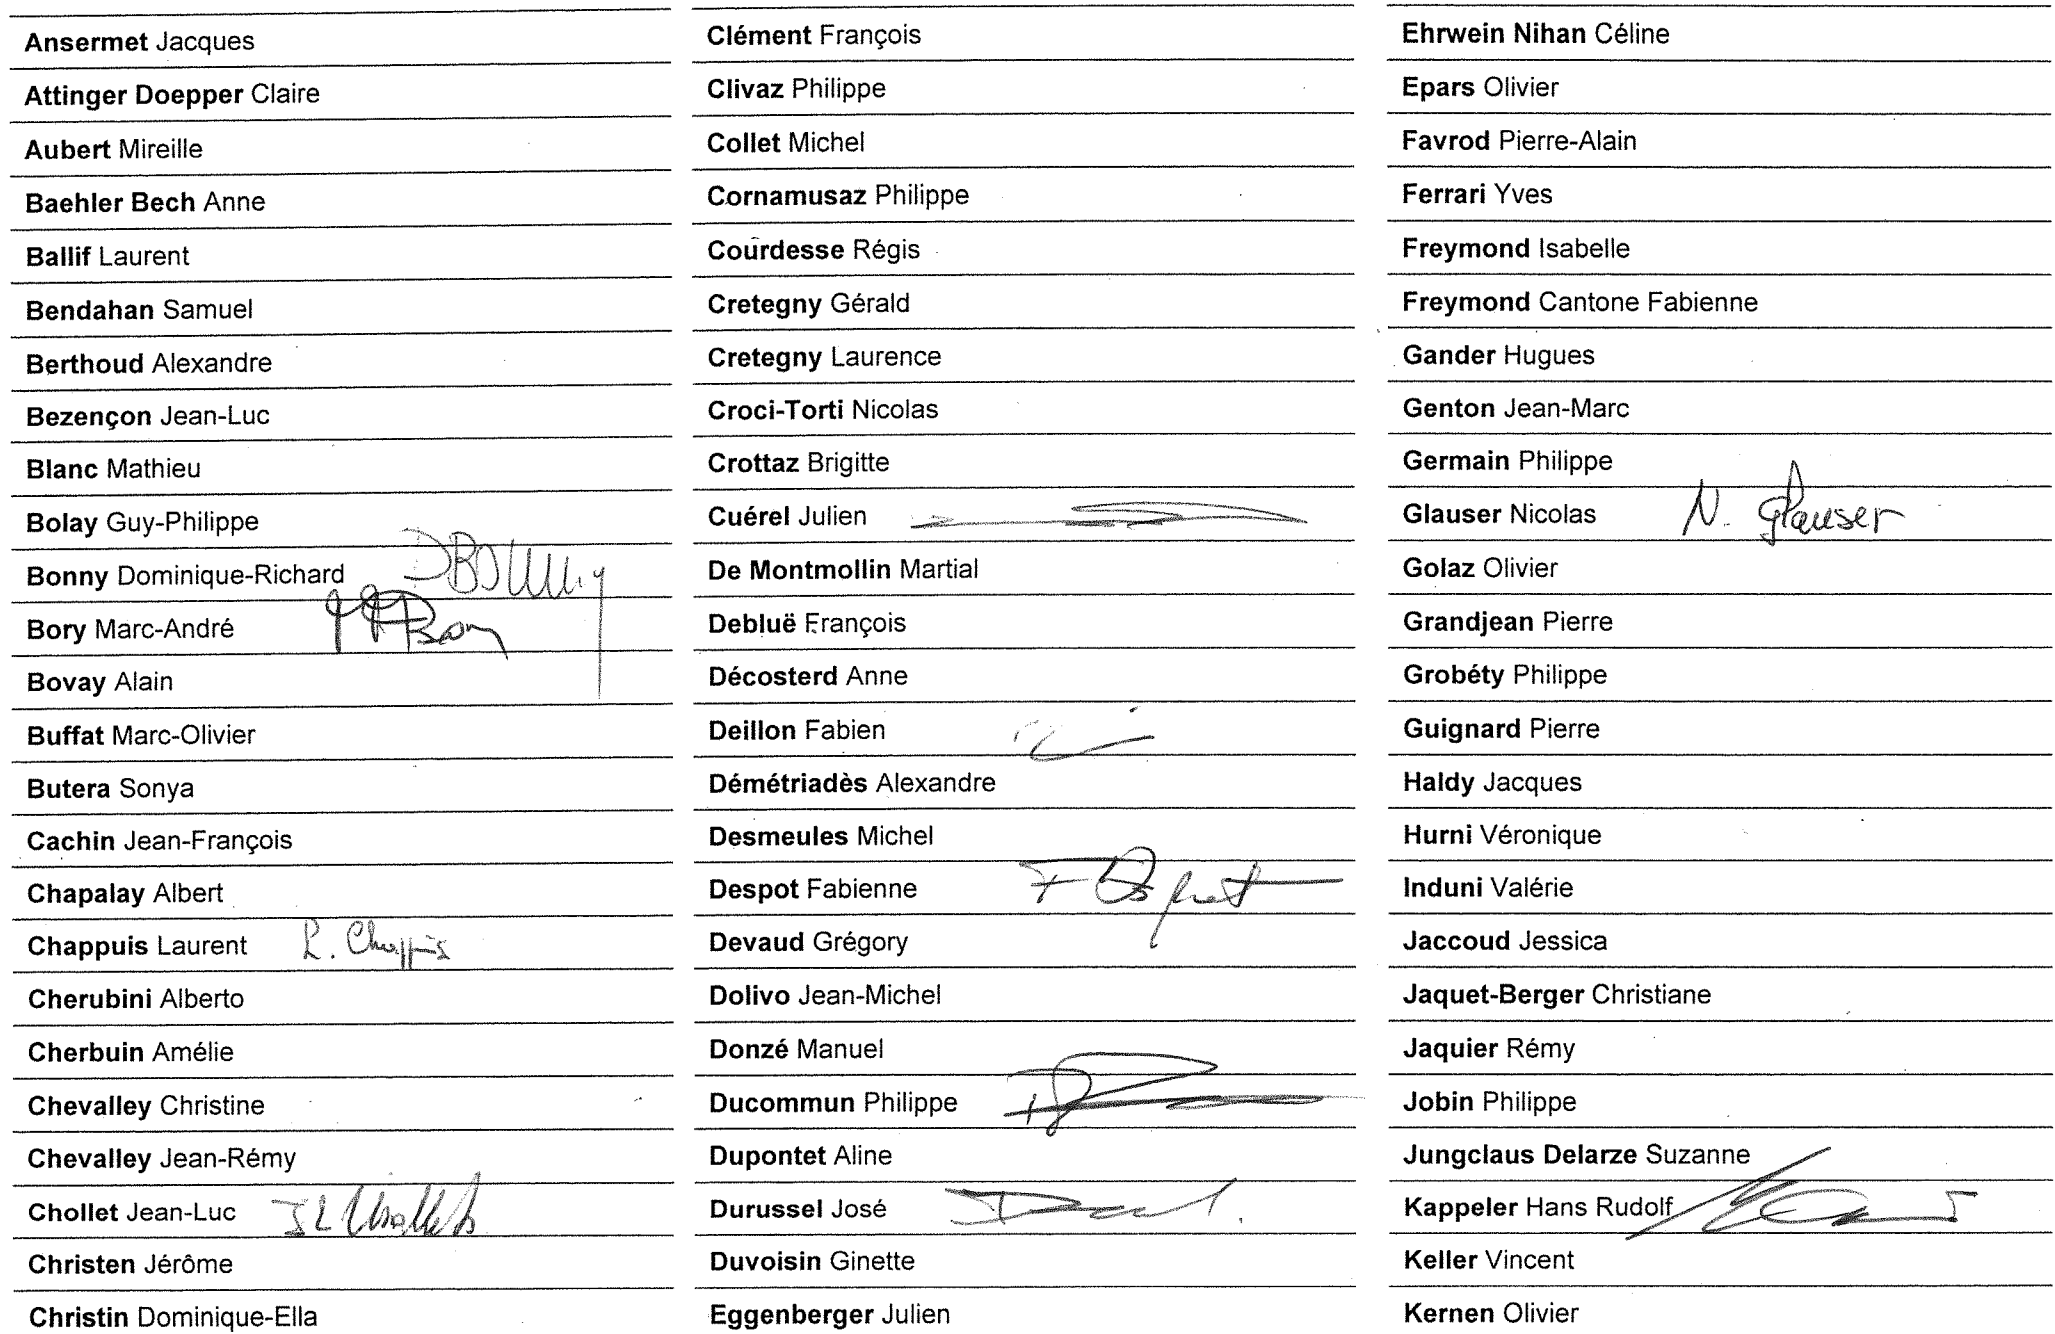 Ansermet Jacques
Attinger Doepper Claire
Aubert Mireille
Baehler Bech Anne
Ballif Laurent
Bendahan Samuel
Berthoud Alexandre
Bezençon Jean-Luc
Blanc Mathieu
Bolay Guy-Philippe
Bonny Dominique-Richard
Bory Marc-André
Bovay Alain
Buffat Marc-Olivier
Butera Sonya
Cachin Jean-François
Chapalay Albert
Chappuis Laurent L. Chappuis
Cherubini Alberto
Cherbuin Amélie
Chevalley Christine
Chevalley Jean-Rémy
Chollet Jean-Luc
Christen Jérôme
Christin Dominique-Ella
Clément François
Clivaz Philippe
Collet Michel
Cornamusaz Philippe
Courdesse Régis
Cretegny Gérald
Cretegny Laurence
Croci-Torti Nicolas
Crottaz Brigitte
Cuérel Julien
De Montmollin Martial
Debluë François
Décosterd Anne
Deillon Fabien
Démétriadès Alexandre
Desmeules Michel
Despot Fabienne
Devaud Grégory
Dolivo Jean-Michel
Donzé Manuel
Ducommun Philippe
Dupontet Aline
Durussel José
Duvoisin Ginette
Eggenberger Julien
Ehrwein Nihan Céline
Epars Olivier
Favrod Pierre-Alain
Ferrari Yves
Freymond Isabelle
Freymond Cantone Fabienne
Gander Hugues
Genton Jean-Marc
Germain Philippe
Glauser Nicolas N. Glauser
Golaz Olivier
Grandjean Pierre
Grobéty Philippe
Guignard Pierre
Haldy Jacques
Hurni Véronique
Induni Valérie
Jaccoud Jessica
Jaquet-Berger Christiane
Jaquier Rémy
Jobin Philippe
Jungclaus Delarze Suzanne
Kappeler Hans Rudolf
Keller Vincent
Kernen Olivier